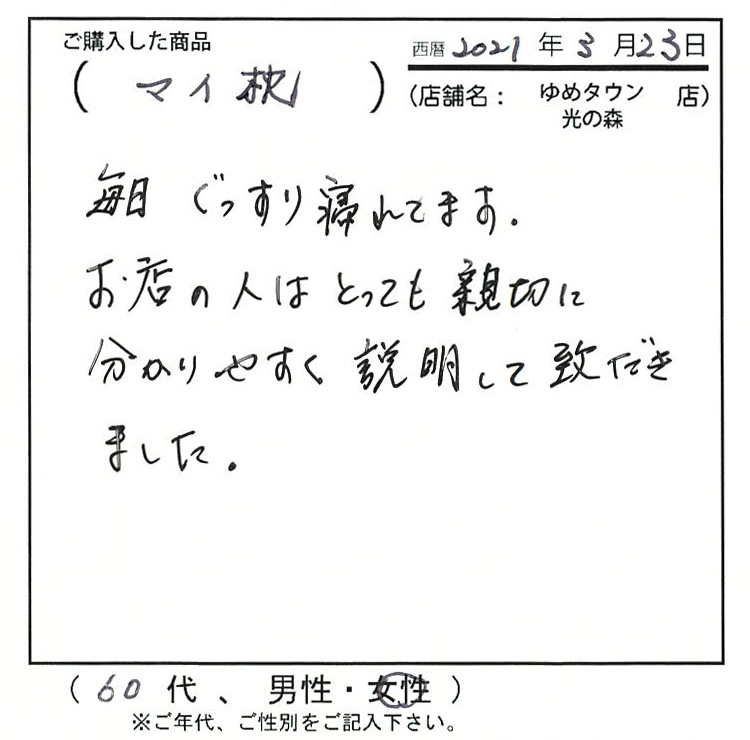 ご購入した商品
西暦 2021 年 3 月 23 日
( マイ枕 )
(店舗名： ゆめタウン 光の森 店)
毎日 ぐっすり寝れてます.
お店の人はとっても親切に
分かりやすく説明して致だき
ました.
( 60 代 、 男性・女性 )
※ご年代、ご性別をご記入下さい。